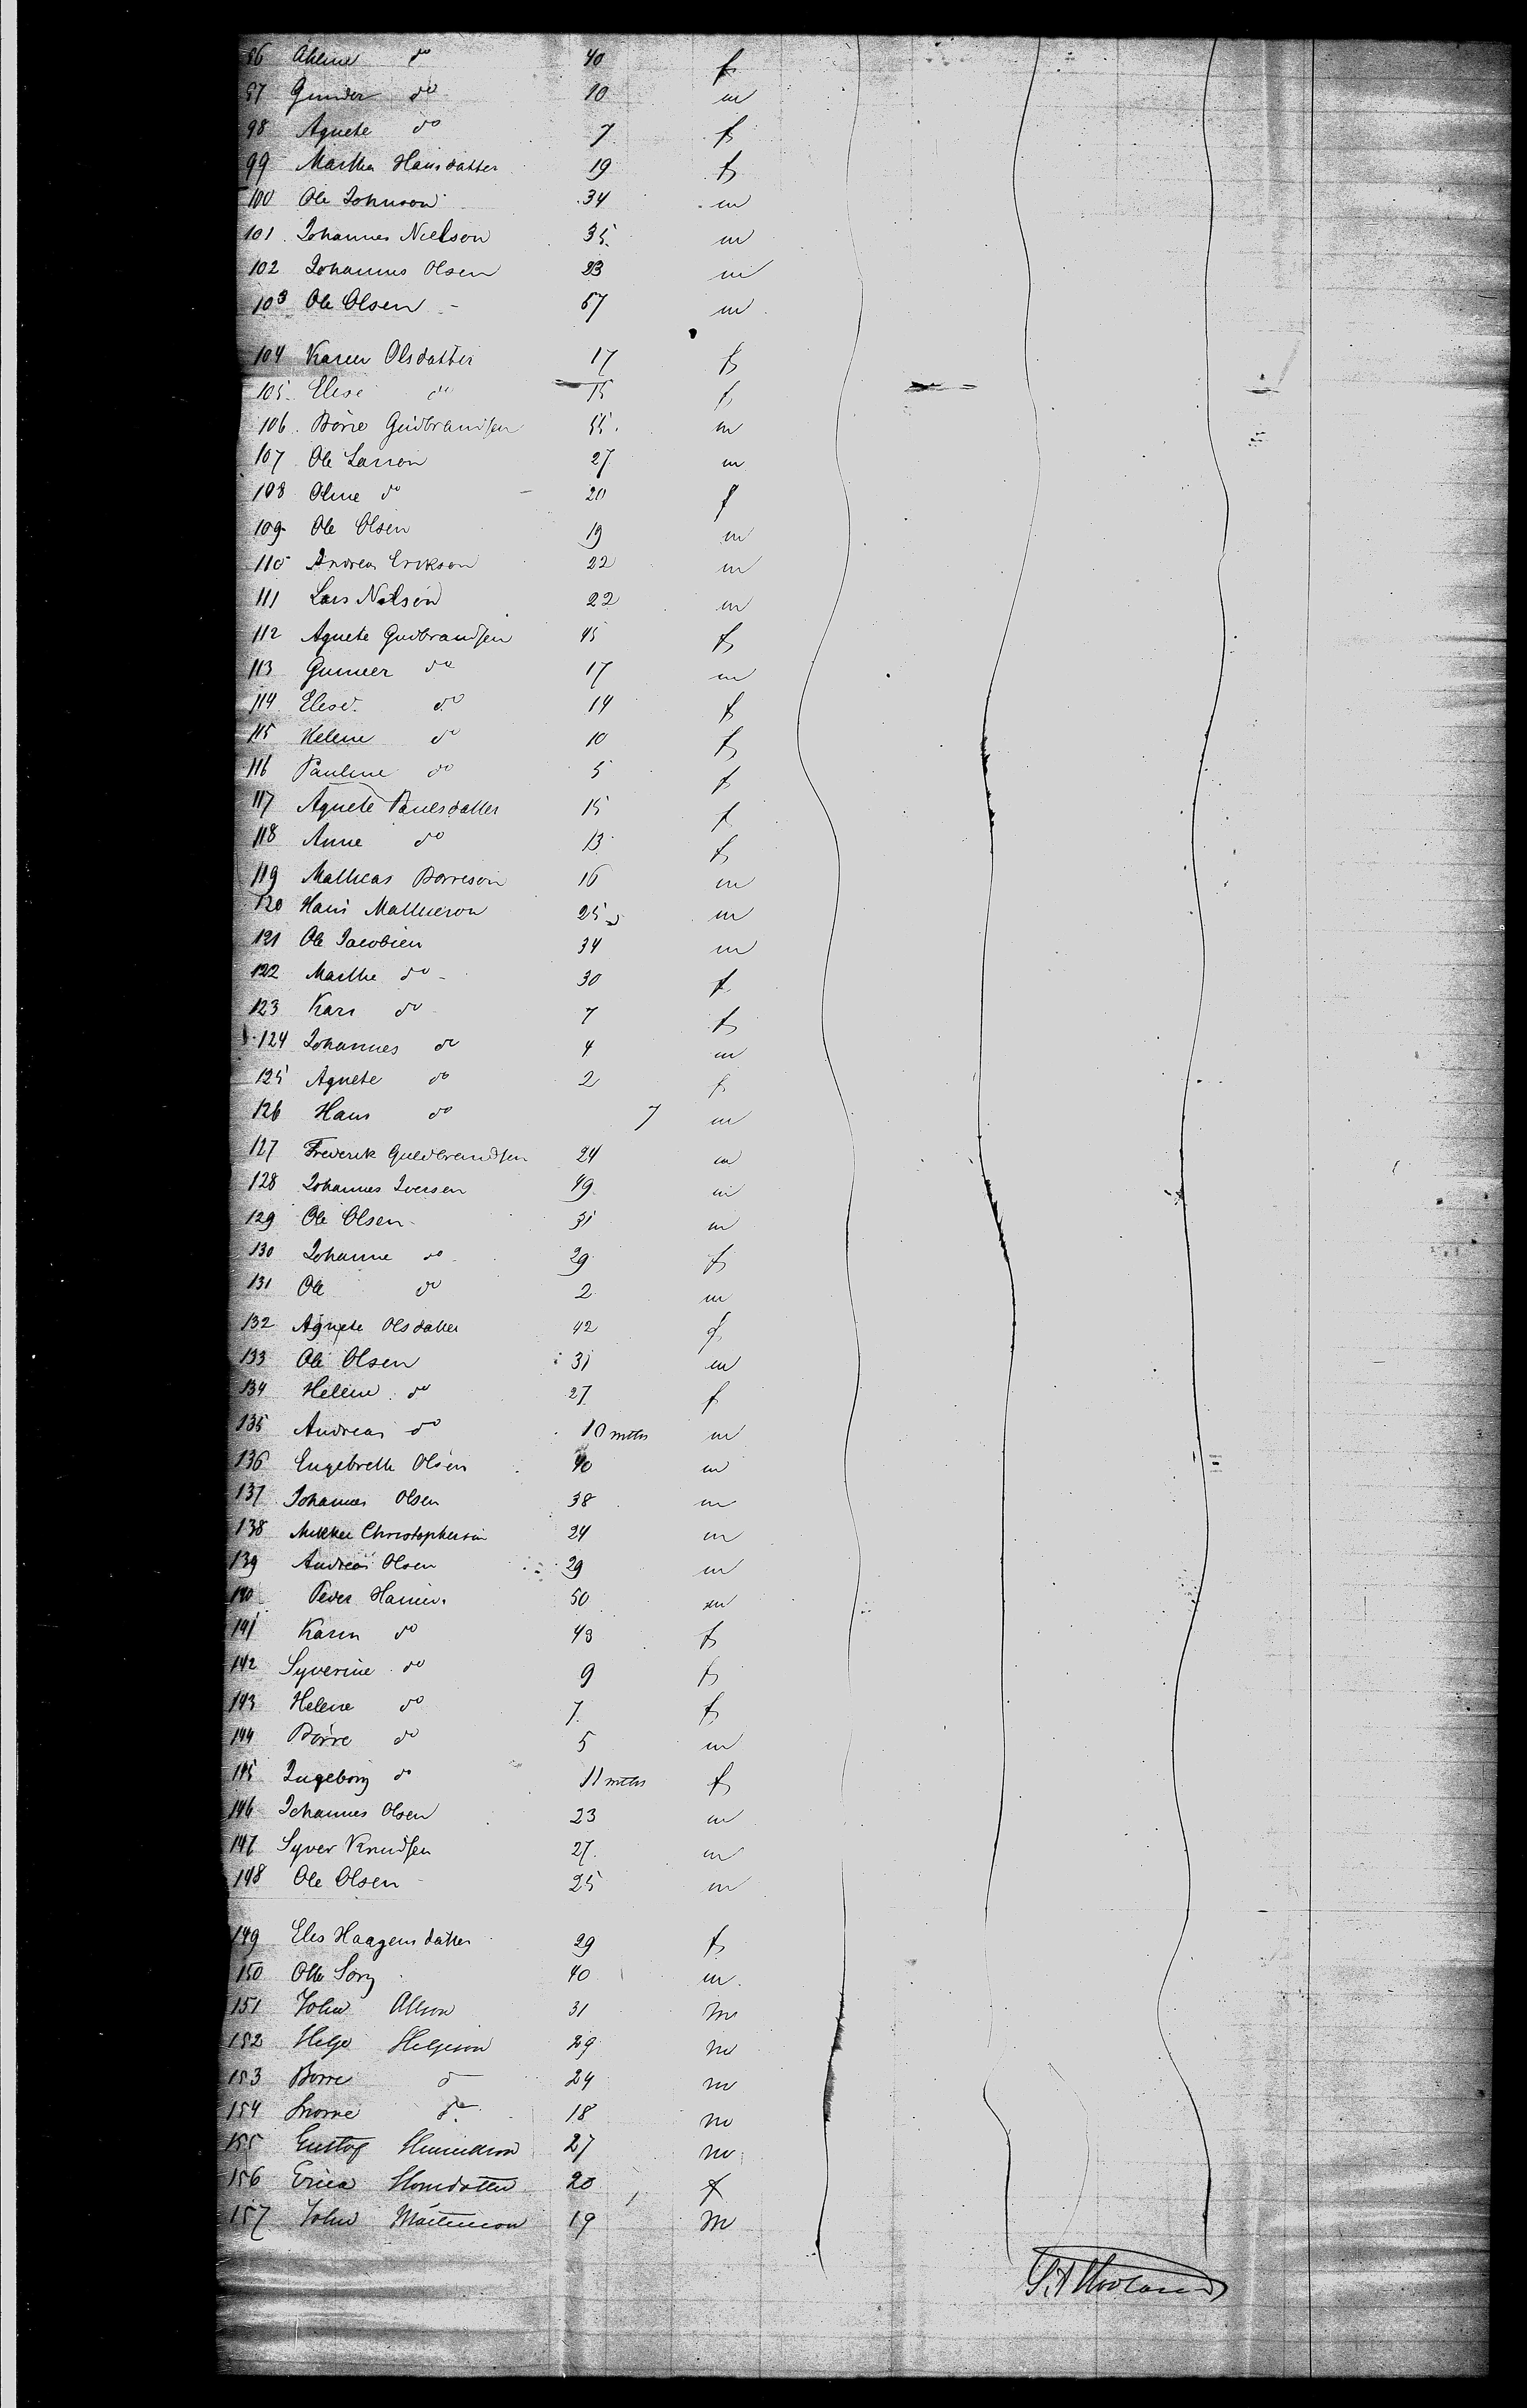 96 Ahline do 40 f
97 Gunder do 10 m
98 Agnete do 7 f
99 Martha Hansdatter 19 f
100 Ole Johnson 34 m
101 Johannes Nielson 35 m
102 Johannes Olsen 23 m
103 Ole Olsen 57 m
104 Karen Olsdatter 17 f
105 Elise do 15 f
106 Börre Gudbrandsen 55 m
107 Ole Larson 27 m
108 Oline do 20 f
109 Ole Olsen 19 m
110 Andreas Erikson 22 m
111 Lars Nilsen 22 m
112 Agnete Gudbrandsen 45 f
113 Gunner do 17 m
114 Elise do 14 f
115 Helene do 10 f
116 Pauline do 5 f
117 Agnete Paulsdatter 15 f
118 Anne do 13 f
119 Mathias Borreson 16 m
120 Hans Mathieson 25 m
121 Ole Jacobsen 34 m
122 Marthe do 30 f
123 Kari do 7 f
124 Johannes do 4 m
125 Agnete do 2 f
126 Hans do 7 m
127 Frederik Guldbrandsen 24 m
128 Johannes Iversen 49 m
129 Ole Olsen 31 m
130 Johanne do 29 f
131 Ole do 2 m
132 Agnete Olsdatter 42 f
133 Ole Olsen 31 m
134 Helene do 27 f
135 Andreas do 10 mths m
136 Engebreth Olsen 40 m
137 Johannes Olsen 38 m
138 Mikkel Christophersen 24 m
139 Andreas Olsen 29 m
140 Peder Hansen 50 m
141 Karen do 43 f
142 Syverine do 9 f
143 Helene do 7 f
144 Börre do 5 m
145 Ingeborg do 11 mths f
146 Johannes Olsen 23 m
147 Syver Knudsen 27 m
148 Ole Olsen 25 m
149 Eles Haagensdatter 29 f
150 Olle 40 m
151 John 31 m
152 Helge Helgeson 29 m
153 Borre do 24 m
154 do 18 m
155 Gustof 27 m
156 20 f
157 John 19 m